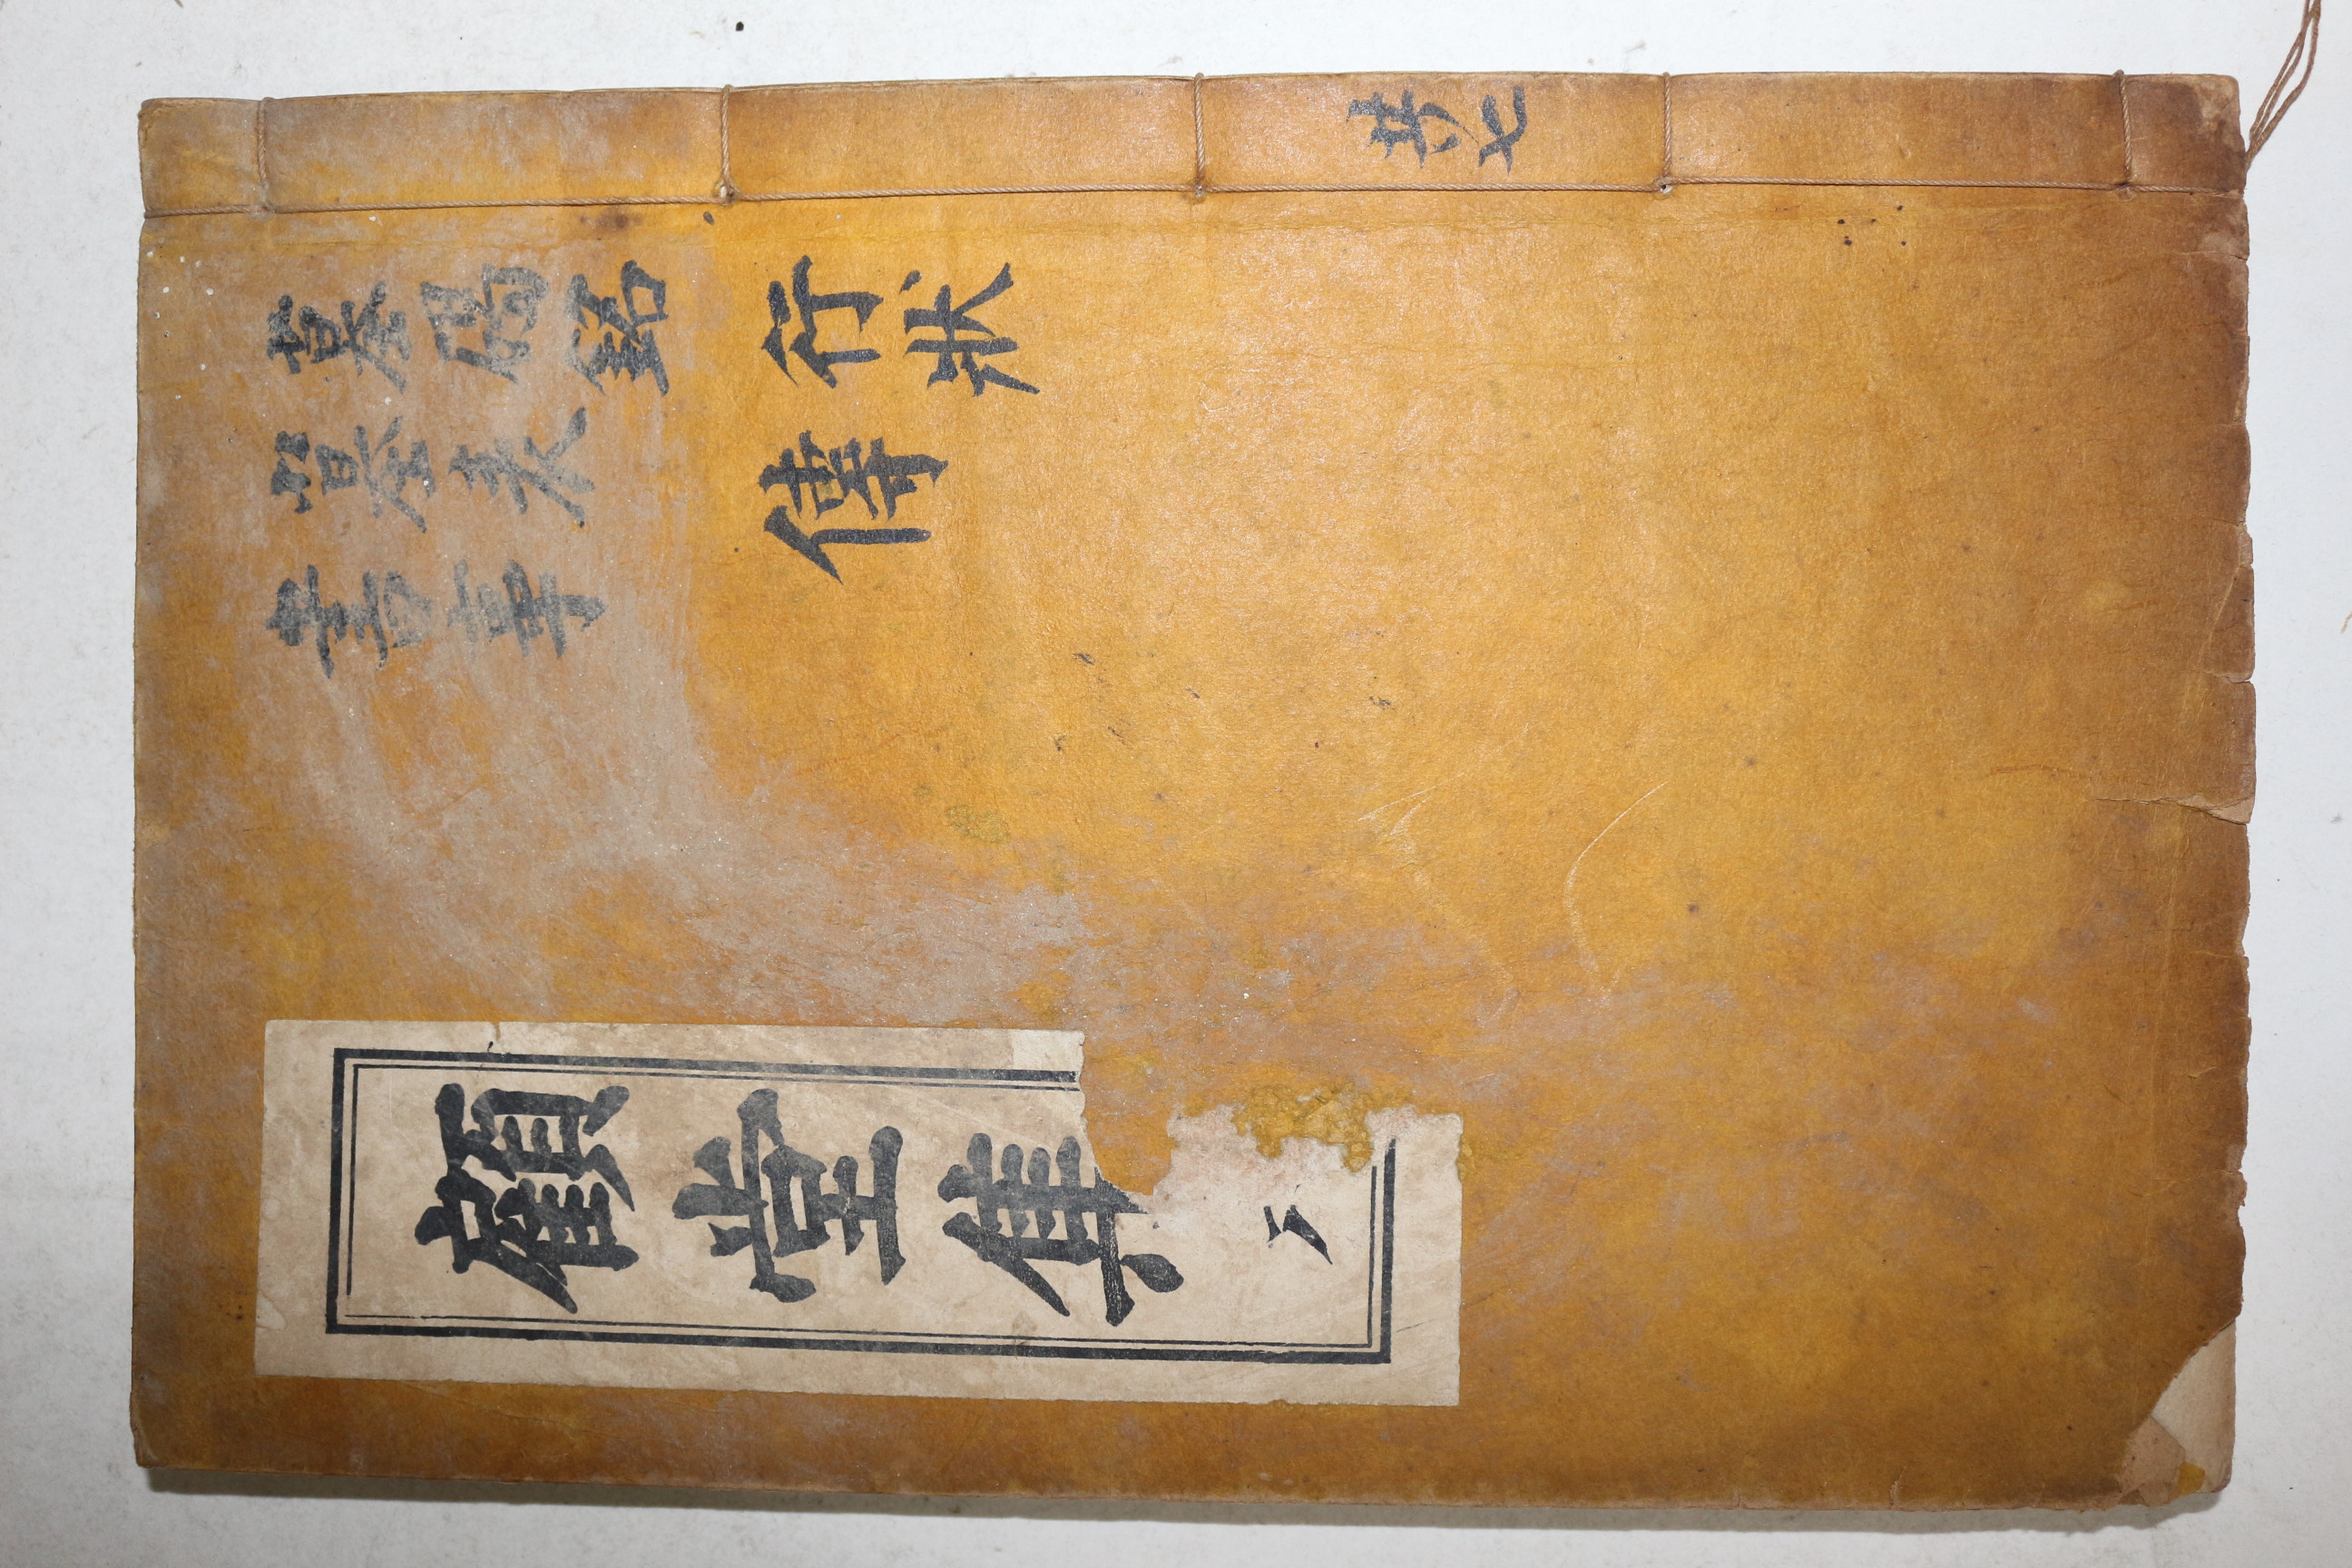 墓碣銘 行狀
墓表 傳
書事
顧堂集
共七